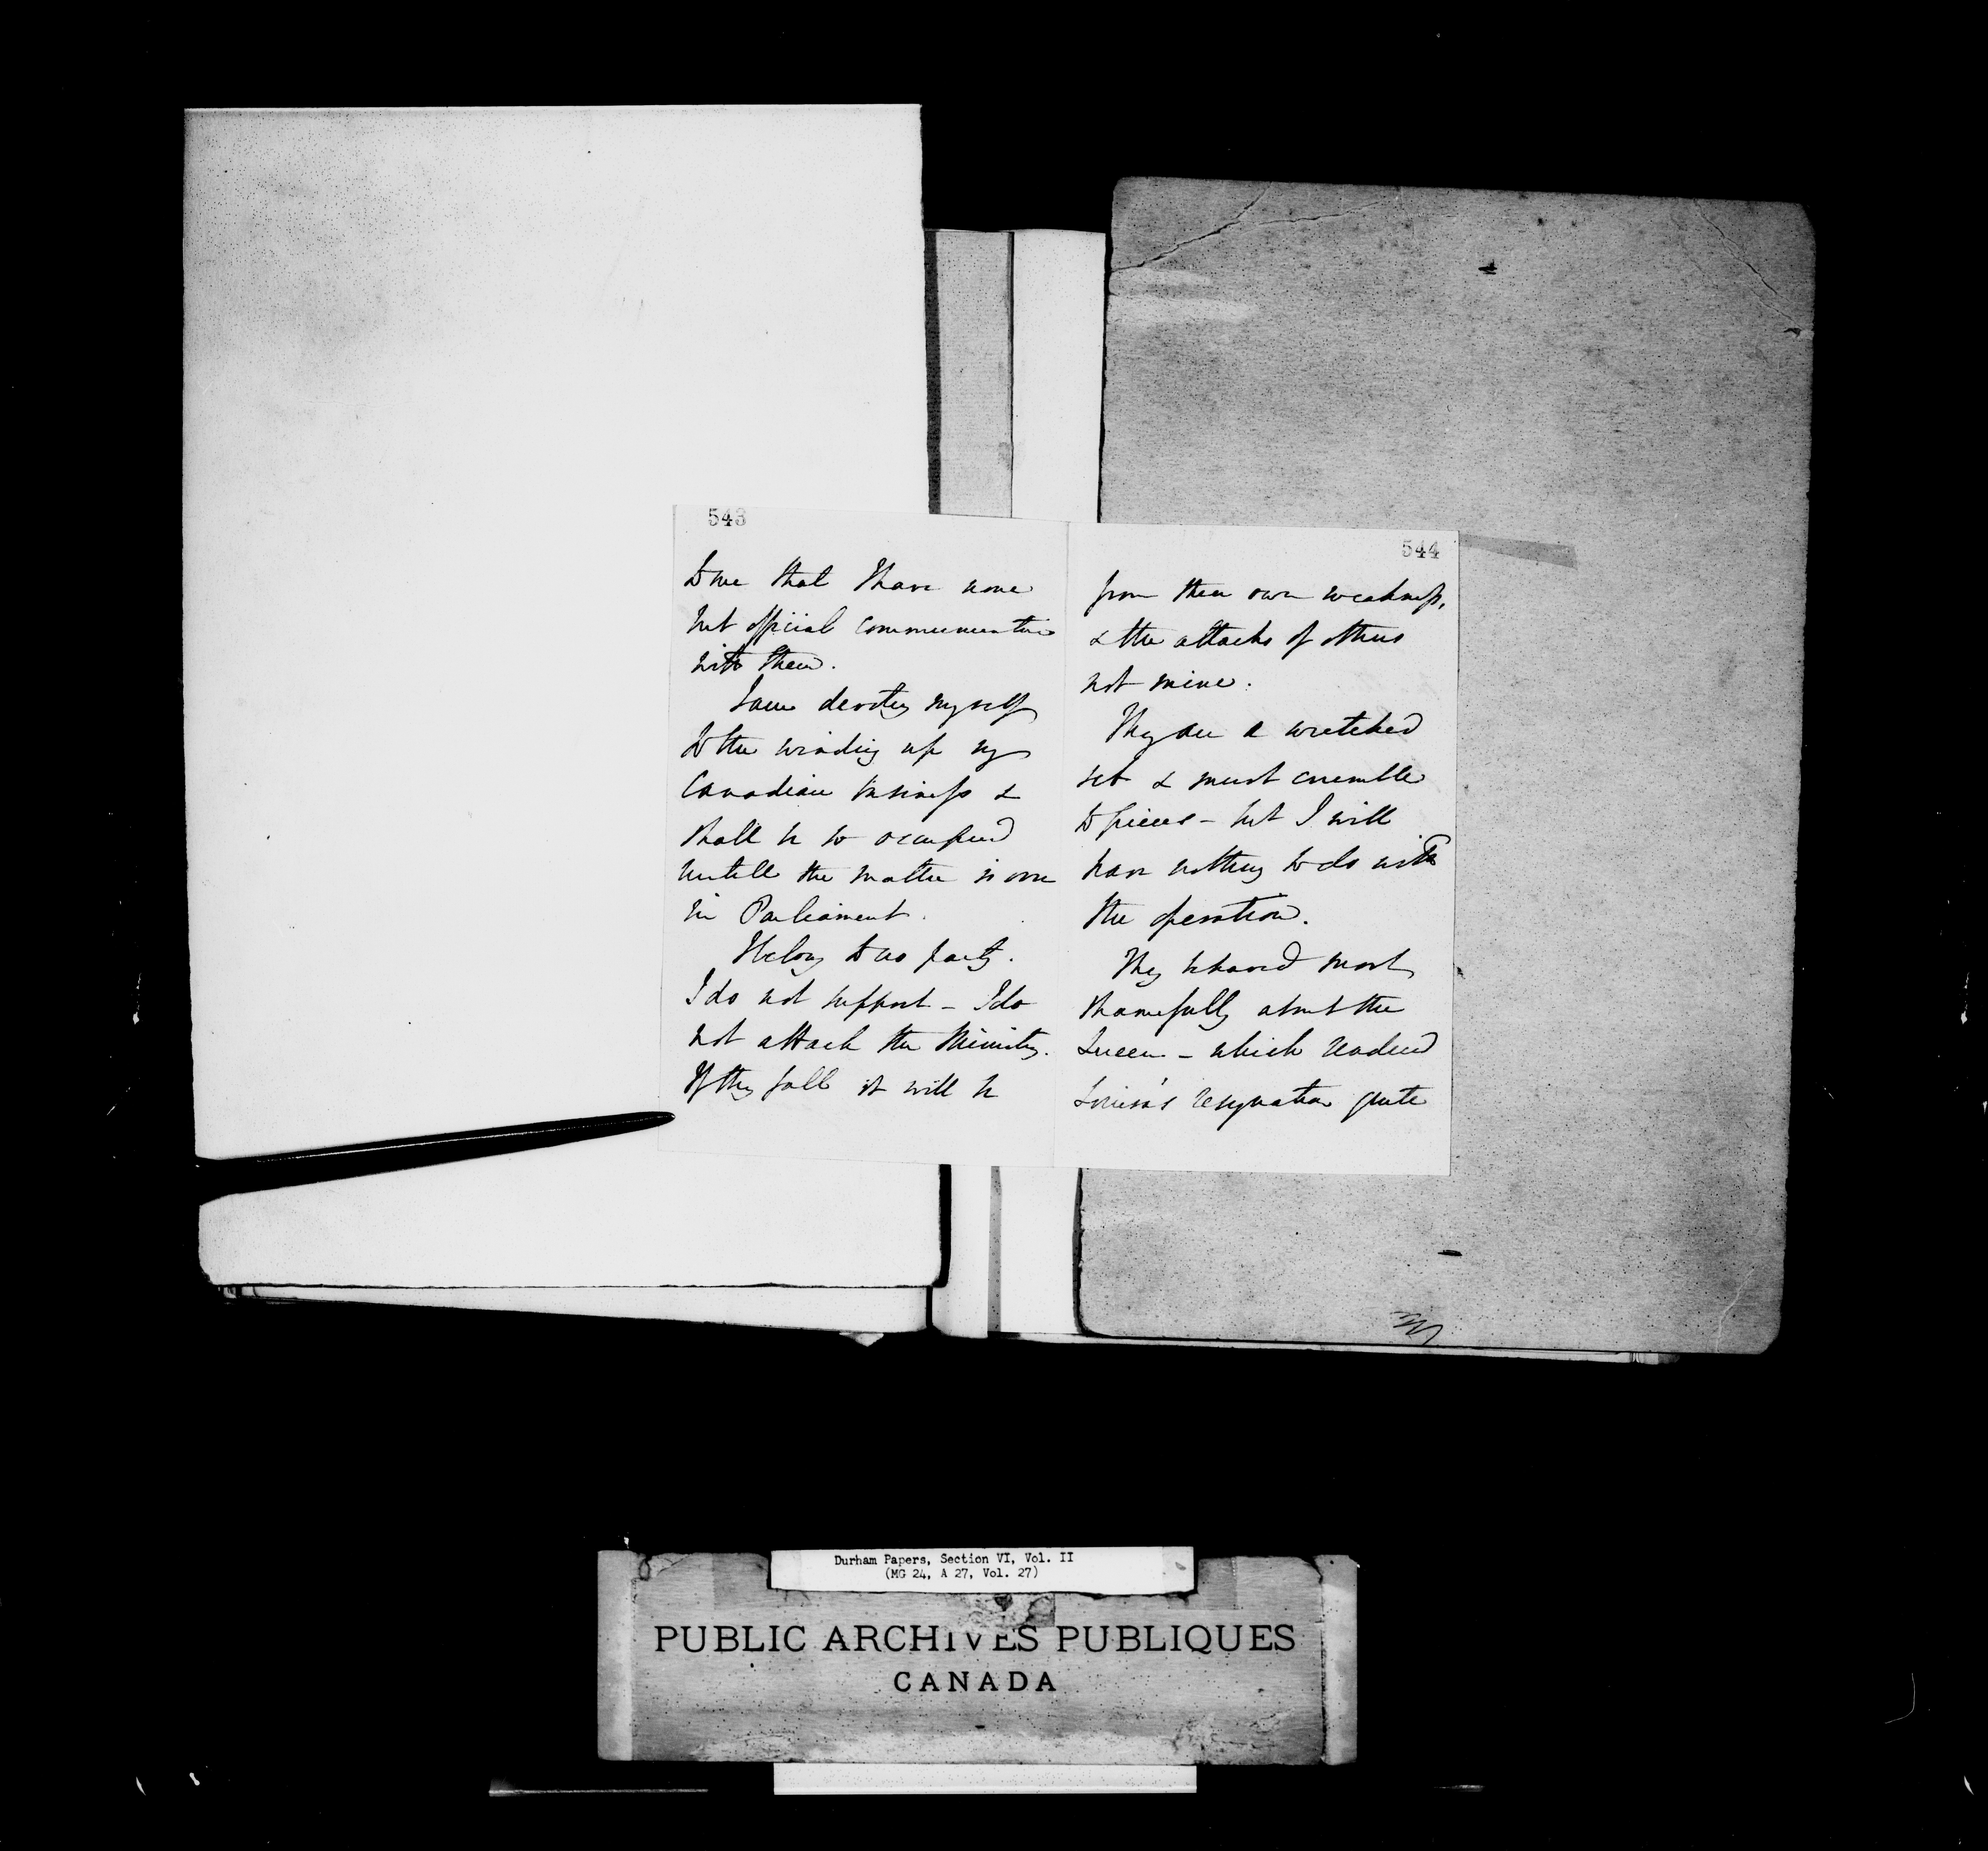 543
to me that I have none
but official communication
with them.
I am devoting myself
to the winding up my
Canadian business &
shall be so occupied
untill the matter is over
in Parliament.
I belong to no party.
I do not support - I do
not attack the Ministry.
If they fall it will be
544
from their own weakness,
& the attacks of others
not mine.
They are a wretched
set & must crumble
to pieces - but I will
have nothing to do with
the operation.
They behaved most
shamefully about the
Queen - which rendered
Louisa's resignation quite
Durham Papers, Section VI, Vol. II
(MG 24, A 27, Vol. 27)
PUBLIC ARCHIVES PUBLIQUES
CANADA